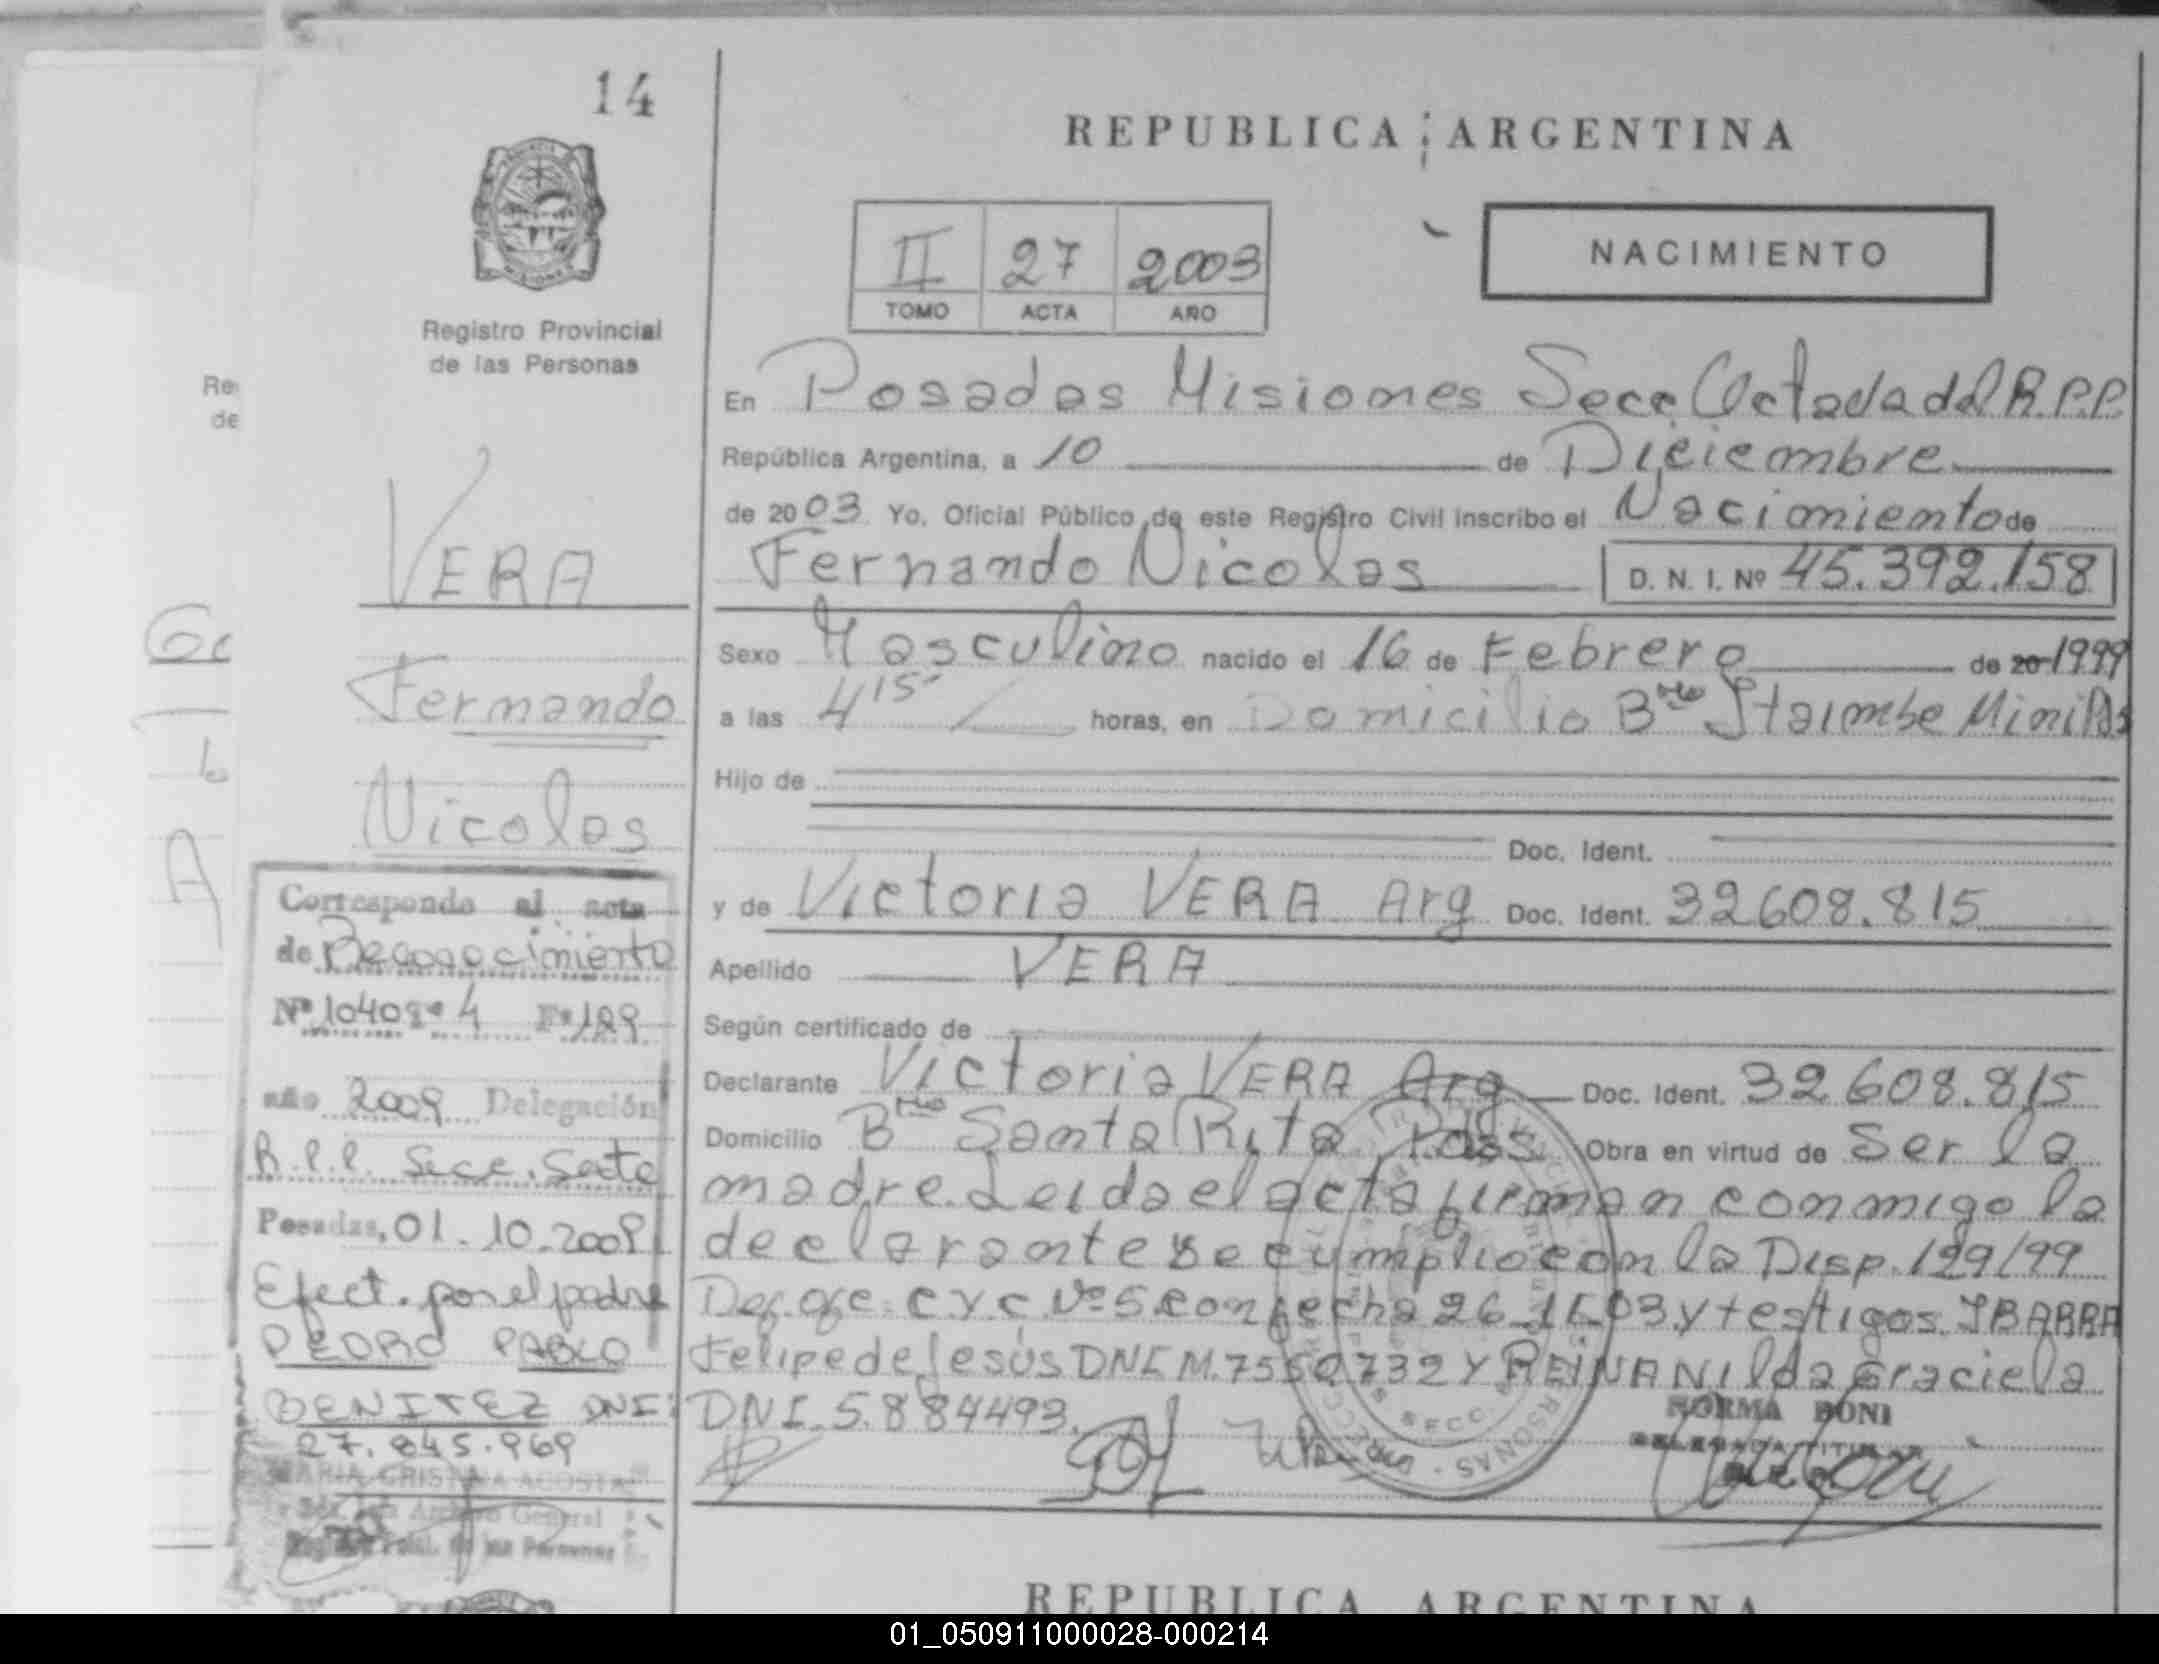 14
REPUBLICA ARGENTINA
II 27 2003
TOMO ACTA AÑO
NACIMIENTO
Registro Provincial
de las Personas
Re
de
VERA
Fernando
Nicolas
En Posadas Misiones Secc. Octava del R.P.P.
República Argentina, a 10 de Diciembre
de 2003 Yo, Oficial Público de este Registro Civil inscribo el Nacimiento de
Fernando Nicolas D. N. I. Nº 45.392.158
Sexo Masculino nacido el 16 de Febrero de 20 1999
a las 4 15 horas, en Domicilio Brrio Itaimbe Mini Pdas
Hijo de
Doc. Ident.
y de Victoria VERA Arg Doc. Ident. 32608.815
Apellido VERA
Según certificado de
Declarante Victoria VERA Arg Doc. Ident. 32608.815
Domicilio Brrio Santa Rita Pdas Obra en virtud de Ser la
madre. Leida el acta firman conmigo la
declarante se cumplio con la Disp. 129/99
Def. Ofc. C Y C Nº 5 con fecha 26-11-03 y testigos IBARRA
Felipe de Jesús DNI M. 7550732 Y REINA Nilda Graciela
DNI. 5.884493.
NORMA BONI
DELEGADA TITULAR
Corresponde al acta
de Reconocimiento
Nº 10408 Tº 4 Fº 129
año 2009 Delegación
R.P.P. Secc. Sexta
Posadas, 01.10.2009
Efect. por el padre
PEDRO PABLO
BENITEZ DNI:
27.845.969
MARIA CRISTINA ACOSTA
Archivo General
Registro Pcial. de las Personas
REPUBLICA ARGENTINA
01_050911000028-000214